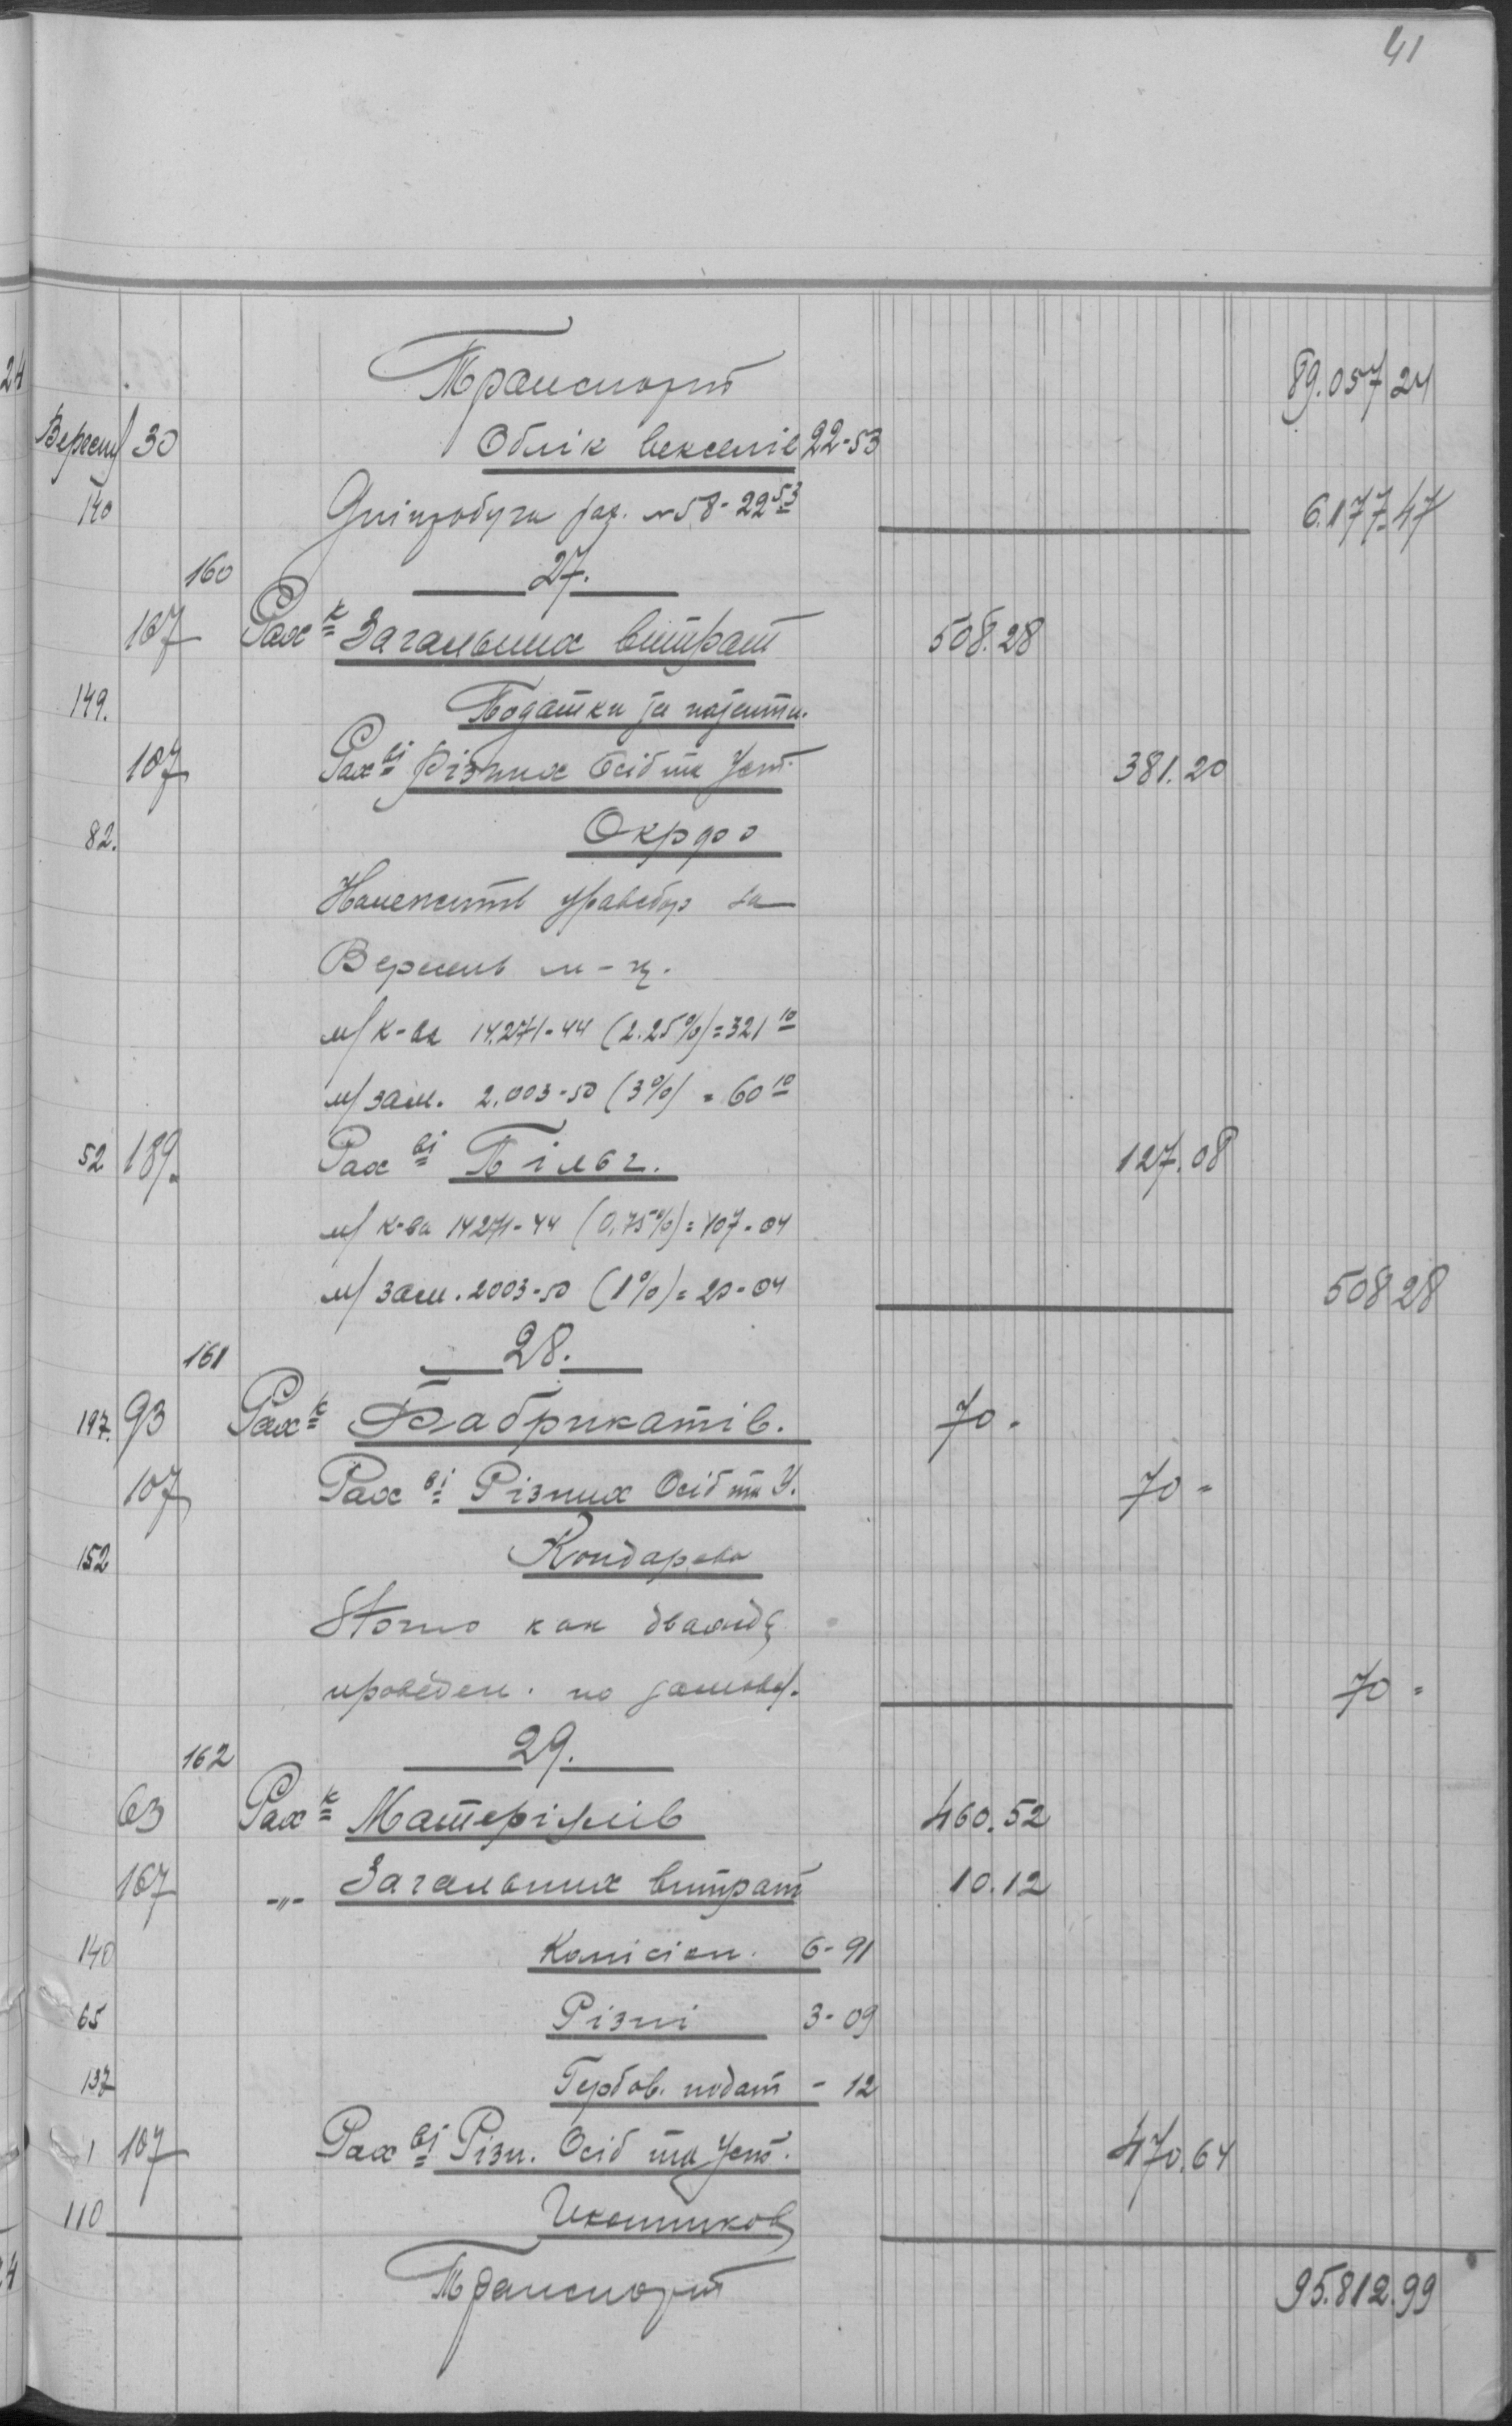 41
Транспорт 89.057 24
Вересня 30 Облік векселів 22-53
140 рах. № 58 - 22 53 6.177-47
160 27.
167 Рах к Загальних витрат 508.28
149. Податки за патенти.
107 Рах ві Різних Осіб та Уст. 381.20
82. Окрфо
Належить за
Вересень м-ц.
м/ к-ва 14.271-44 (2.25%) = 321 10
м/ зам. 2.003-50 (3%) = 60 10
52 189. Рах ві Пільг. 127.08
м/ к-ва 14271-44 (0,75%) = 107-04
м/ зам. 2003-50 (1%) = 20-04 508 28
161 28.
197. 93 Рах к Фабрикатів. 70.
107 Рах ві Різних Осіб та У. 70 =
152 Кондарева
Storno как дважды
проведен. по 70 =
162 29.
63 Рах к Матеріялів 460.52
167 -„- Загальних витрат 10.12
140 Комісіон. 6-91
65 Різні 3-09
137 Гербов. подат - 12
1 107 Рах ві Різн. Осіб та Уст. 470.64
110
Транспорт 95.812.99